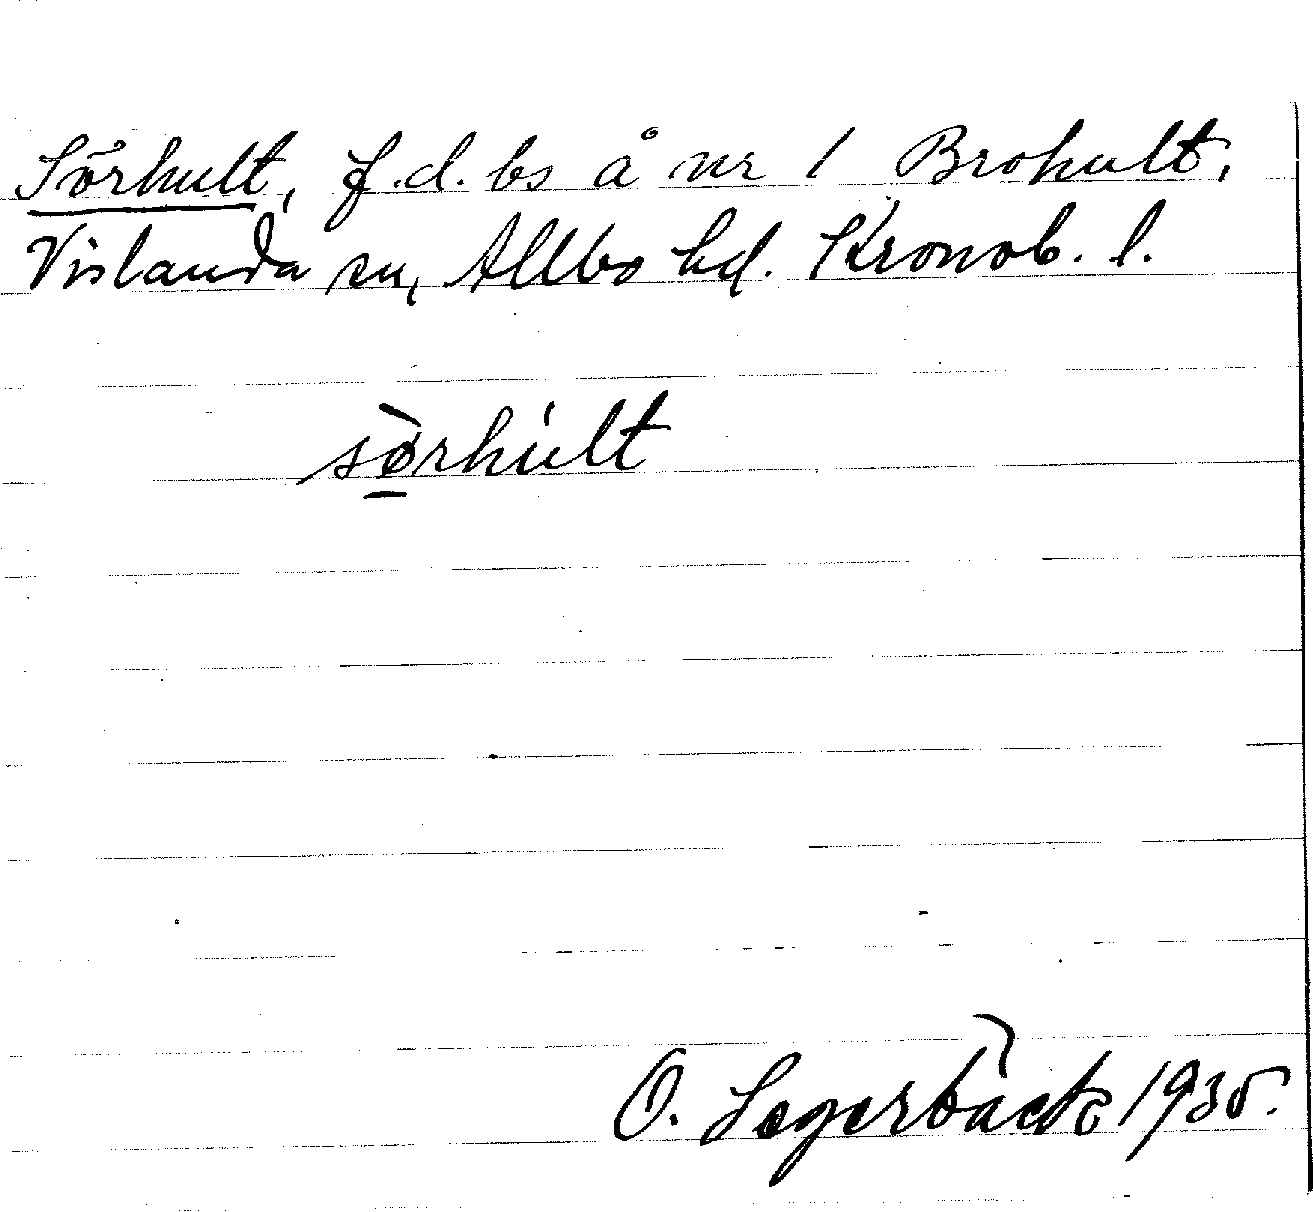 Sörhult, f.d. bs å nr 1 Brohult,
Vislanda sn, Allbo hd. Kronob. l.
sø̱̀rhúlt
O. Lagerbäck 1935.